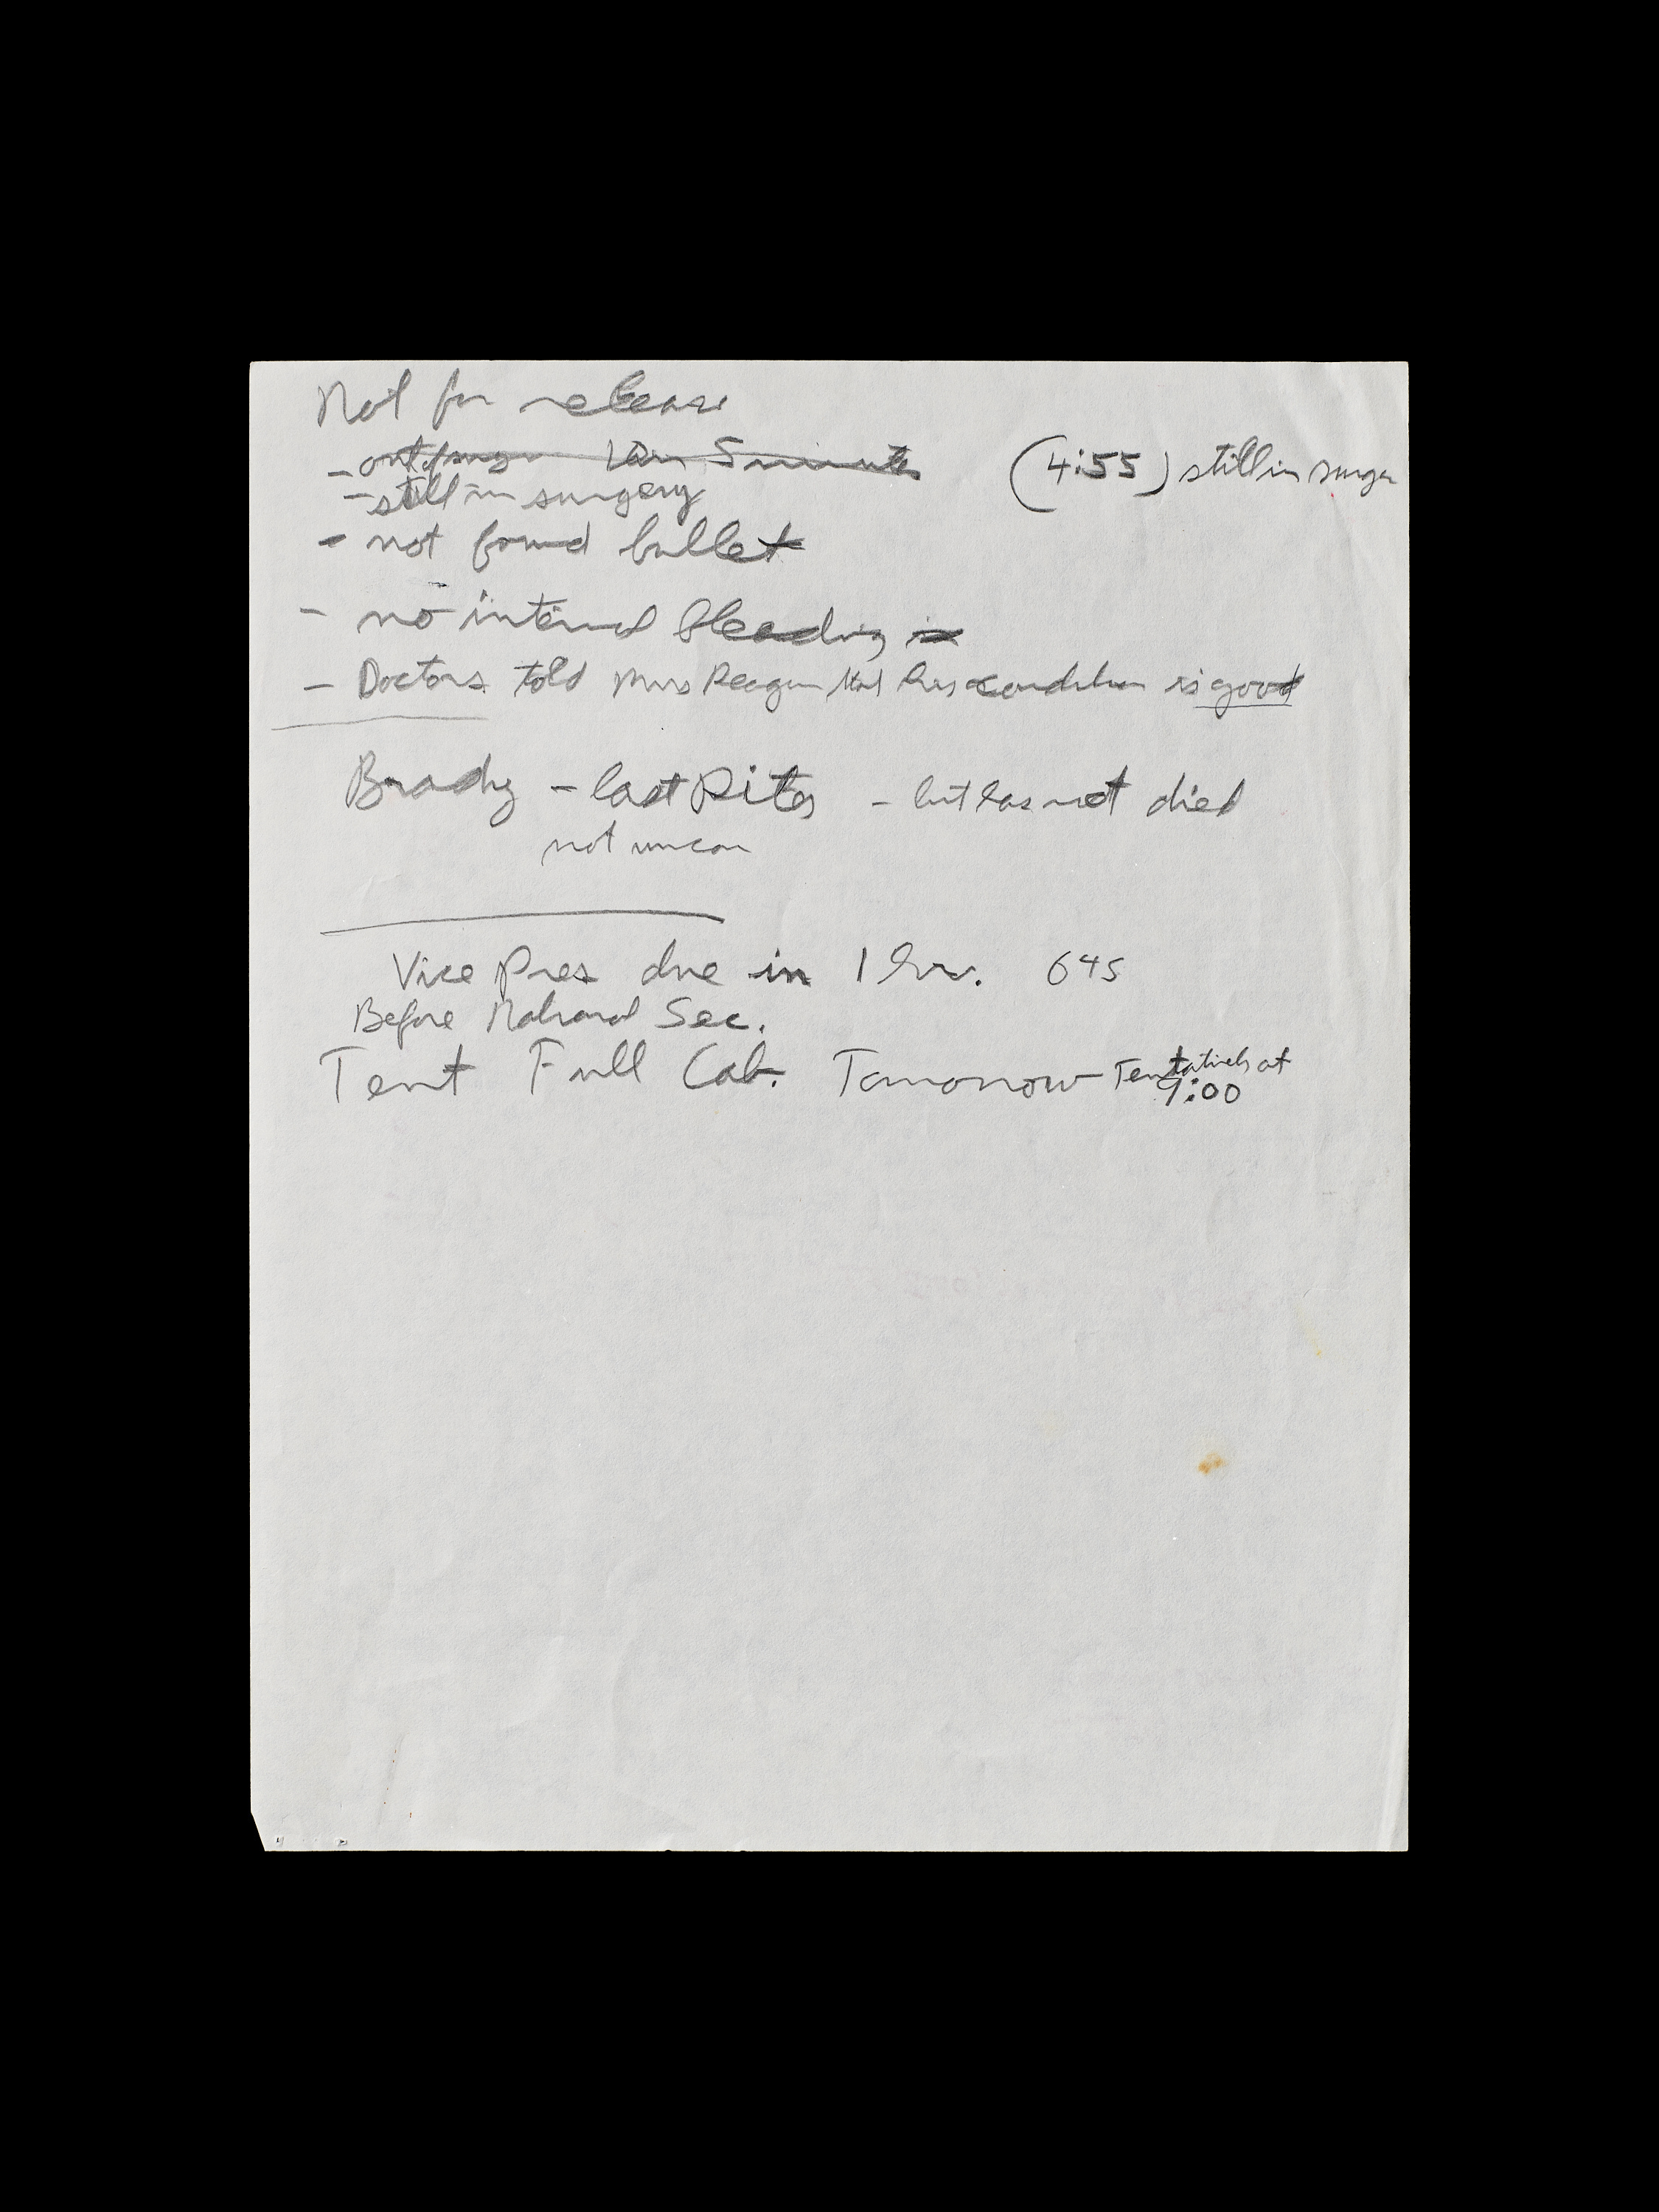 Not for release
- out of surgery 5 minutes
(4:55) still in surger
- still in surgery
- not found bullet
- no internal bleeding
- Doctors told Mrs Reagan that his condition is good
Brady - last Rites - but has not died
not uncon
Vice Pres due in 1 hr. 645
Before National Sec.
Tent Full Cab. Tomorrow Tentatively at
9:00